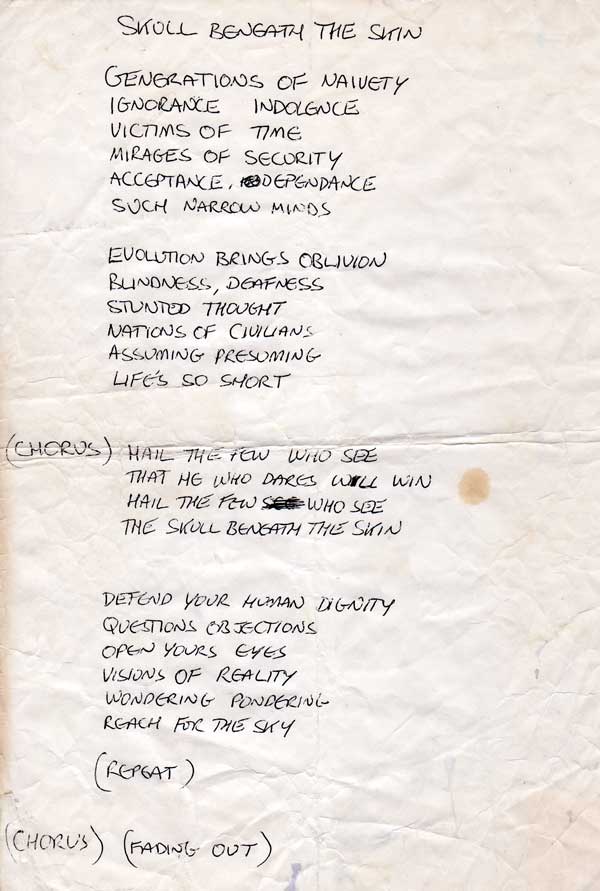 SKULL BENEATH THE SKIN
GENERATIONS OF NAIVETY
IGNORANCE INDOLENCE
VICTIMS OF TIME
MIRAGES OF SECURITY
ACCEPTANCE, DEPENDANCE
SUCH NARROW MINDS
EVOLUTION BRINGS OBLIVION
BLINDNESS, DEAFNESS
STUNTED THOUGHT
NATIONS OF CIVILIANS
ASSUMING PRESUMING
LIFE'S SO SHORT
(CHORUS) HAIL THE FEW WHO SEE
THAT HE WHO DARES WILL WIN
HAIL THE FEW WHO SEE
THE SKULL BENEATH THE SKIN
DEFEND YOUR HUMAN DIGNITY
QUESTIONS OBJECTIONS
OPEN YOURS EYES
VISIONS OF REALITY
WONDERING PONDERING
REACH FOR THE SKY
(REPEAT)
(CHORUS) (FADING OUT)